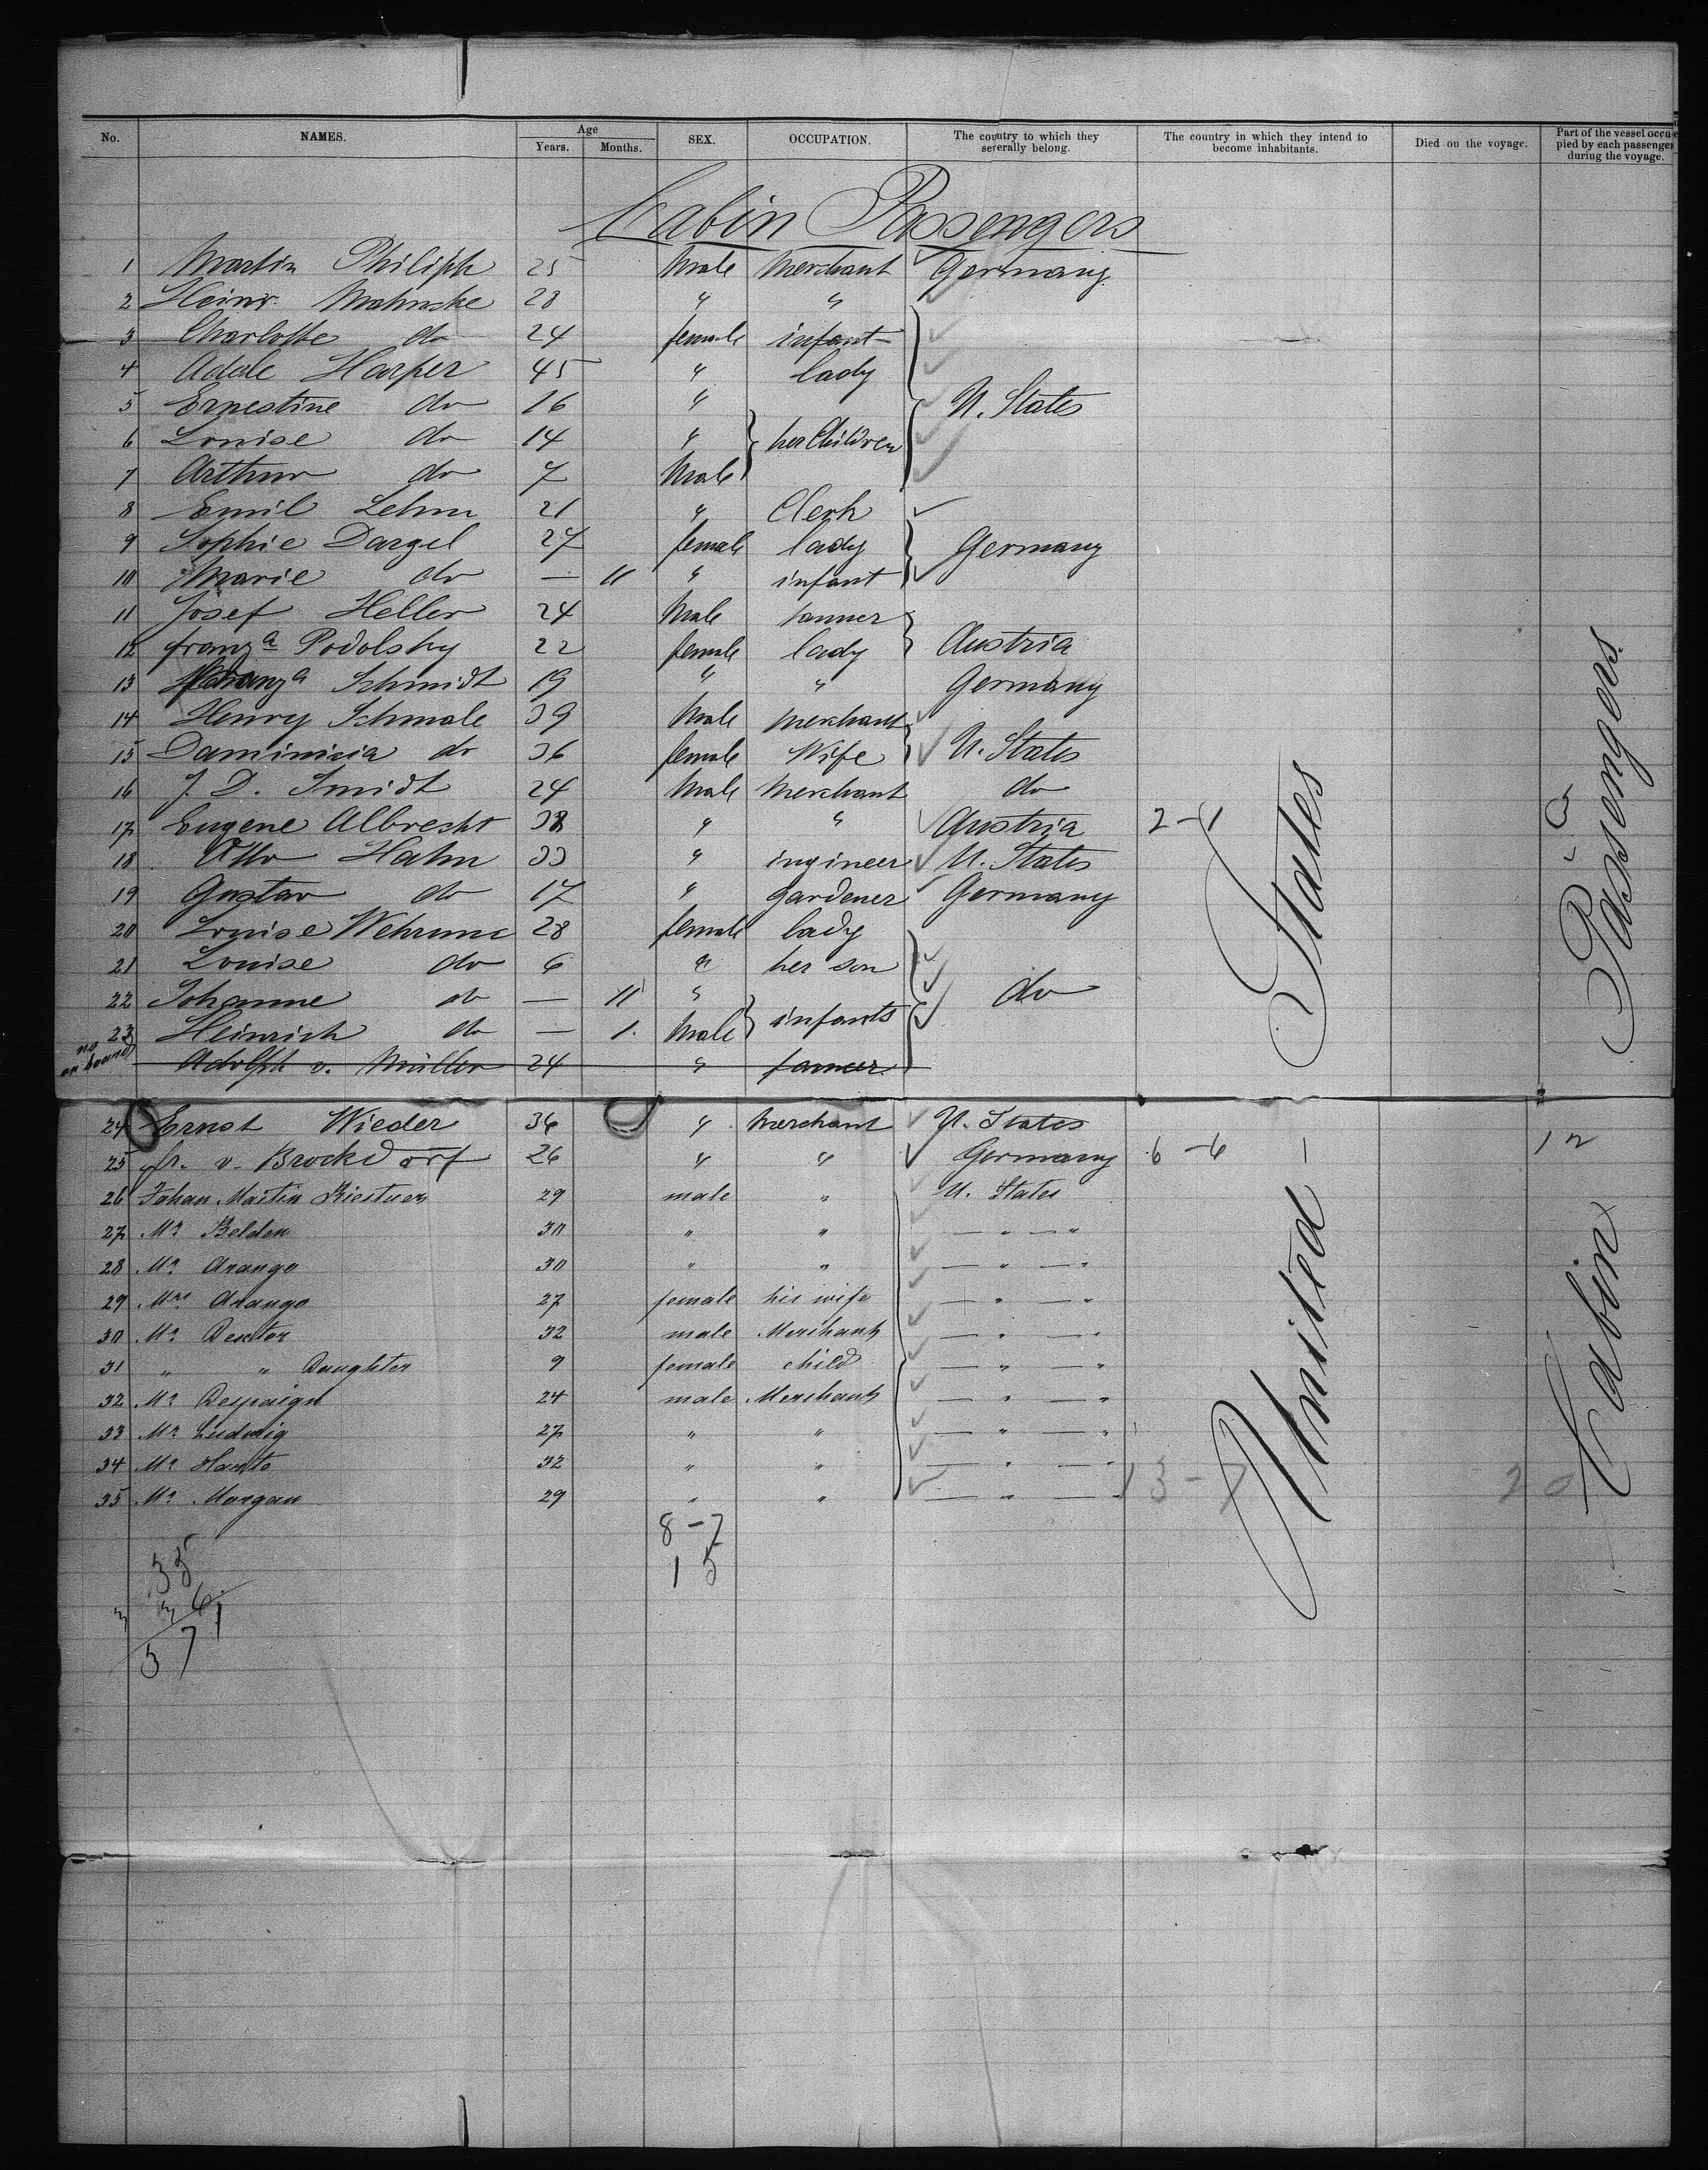 No. NAMES. Age Years. Months. SEX. OCCUPATION. The country to which they severally belong. The country in which they intend to become inhabitants. Died on the voyage. Part of the vessel occupied by each passenger during the voyage.
Cabin Passengers
1 Martin Philiph 25 Male Merchant Germany
2 Heinr. Mahnske 28 " "
3 Charlotte do 24 female infant
4 Adele Harper 45 " lady
5 Ernestine do 16 " U. States
6 Louise do 14 " her Children
7 Arthur do 7 Male
8 Emil Lehm 21 " Clerk
9 Sophie Dargel 27 female lady Germany
10 Marie do — 11 " infant
11 Josef Heller 24 Male tanner
12 franza Podolsky 22 female lady Austria
13 Schmidt 19 " " Germany
14 Henry Schmale 39 Male merchant
15 Daminicia do 36 female Wife U. States
16 J. D. Smidt 24 Male Merchant do
17 Eugene Albrecht 38 " " Austria 2-1
18 Otto Hahn 33 " ingineer U. States
19 Gustav do 17 " gardener Germany
20 Louise Wehrum 28 female lady
21 Louise do 6 " her son
22 Johanne do — 11 " infants do
23 Heinrich do — 1. Male
no on board Adolph v. Müller 24 " farmer
24 Ernst Wieder 36 " Merchant U. States
25 fr. v. Brockdorf 26 " " Germany 6-6 1 12
26 Johan Martin 29 male " U. States
27 Mr Belden 30 " " — " — "
28 Mr Arango 30 " " — " — "
29 Mrs Arango 27 female his wife — " — "
30 Mr Dexter 32 male Merchant — " — "
31 " " Daughter 9 female child — " — "
32 Mr Despaign 24 male Merchant — " — "
33 Mr Ludwig 27 " " — " — "
34 Mr Hamte 32 " " — " — "
35 Mr Morgan 29 " " — " — " 13-7 20
United States
Cabin Passengers.
8-7
15
35
3 36
371